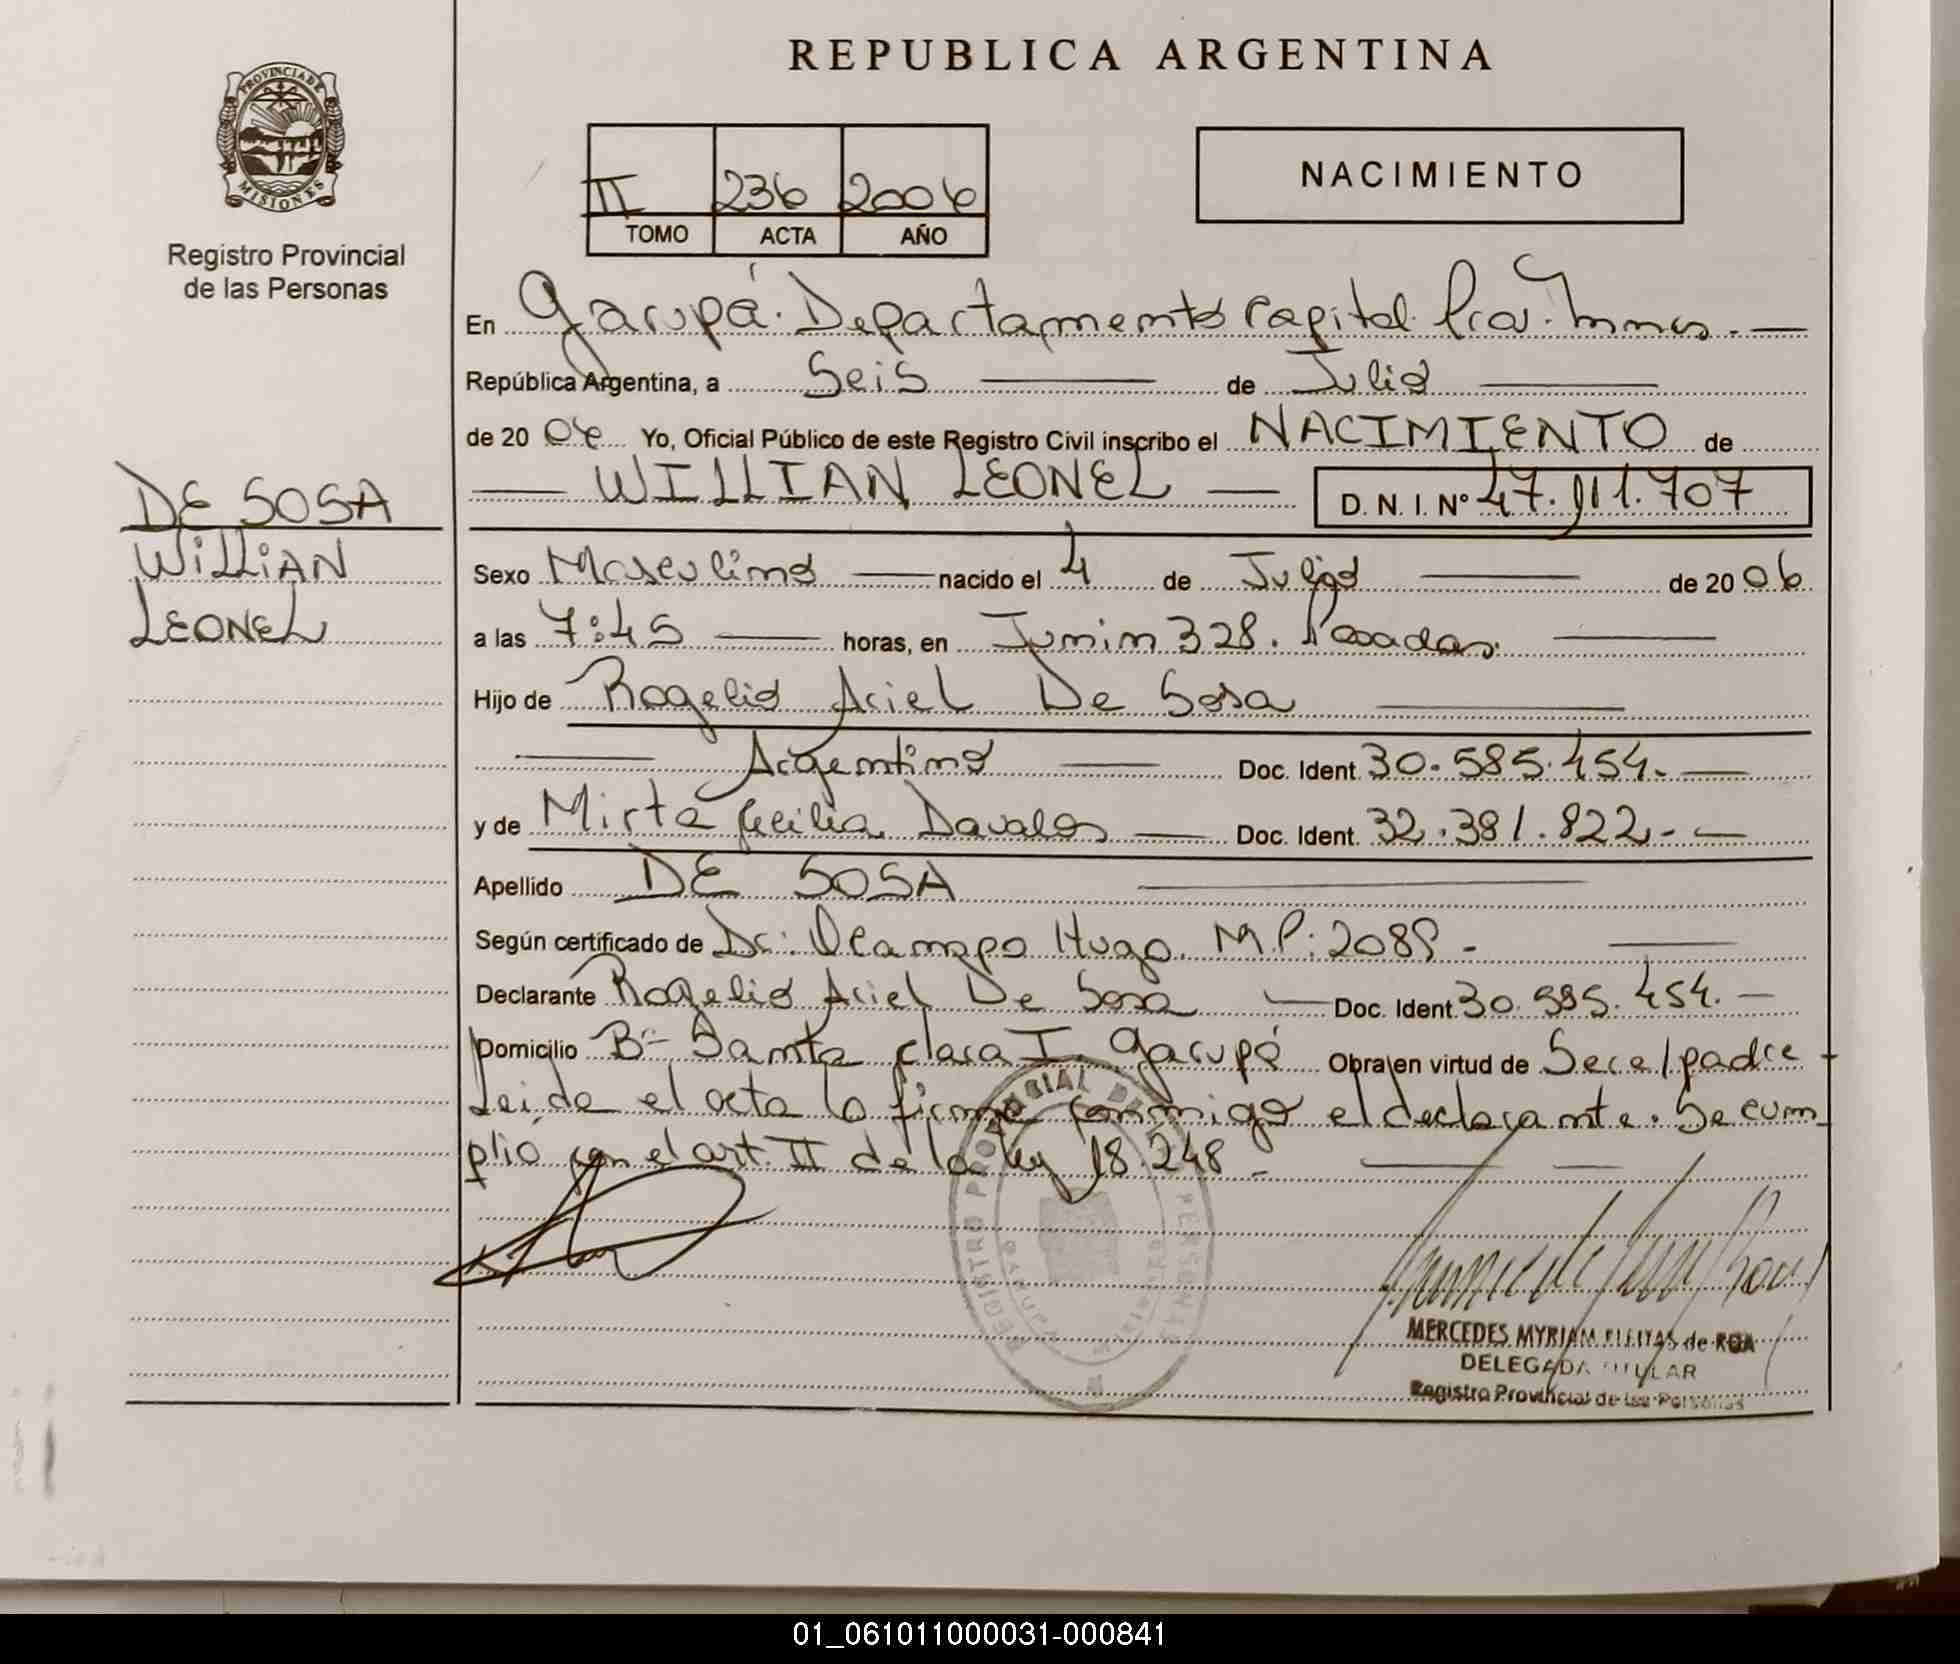 REPUBLICA ARGENTINA
PROVINCIA DE
MISIONES
Registro Provincial
de las Personas
II 236 2006
TOMO ACTA AÑO
NACIMIENTO
En Garupá. Departamento Capital. Prov. Mnes.
República Argentina, a Seis de Julio
de 20 06 Yo, Oficial Público de este Registro Civil inscribo el NACIMIENTO de
WILLIAN LEONEL D. N. I. Nº 47.911.707
DE SOSA
WILLIAN
LEONEL
Sexo Masculino nacido el 4 de Julio de 20 06
a las 7:45 horas, en Junin 328. Posadas.
Hijo de Rogelio Ariel De Sosa
Argentino Doc. Ident. 30.585.454.
y de Mirta Cecilia Davalos Doc. Ident. 32.381.822.-
Apellido DE SOSA
Según certificado de Dr: Ocampo Hugo. M.P: 2089 -
Declarante Rogelio Ariel De Sosa Doc. Ident. 30.585.454.
Domicilio Bº Santa Clara I. Garupá Obra en virtud de Ser el padre
Leida el acta la firma conmigo el declarante. Se cum
plió con el art. II de la ley 18.248 -
REGISTRO PROVINCIAL DE PERSONAS
MERCEDES MYRIAM FLEITAS de ROA
DELEGADA TITULAR
Registro Provincial de las Personas
01_061011000031-000841